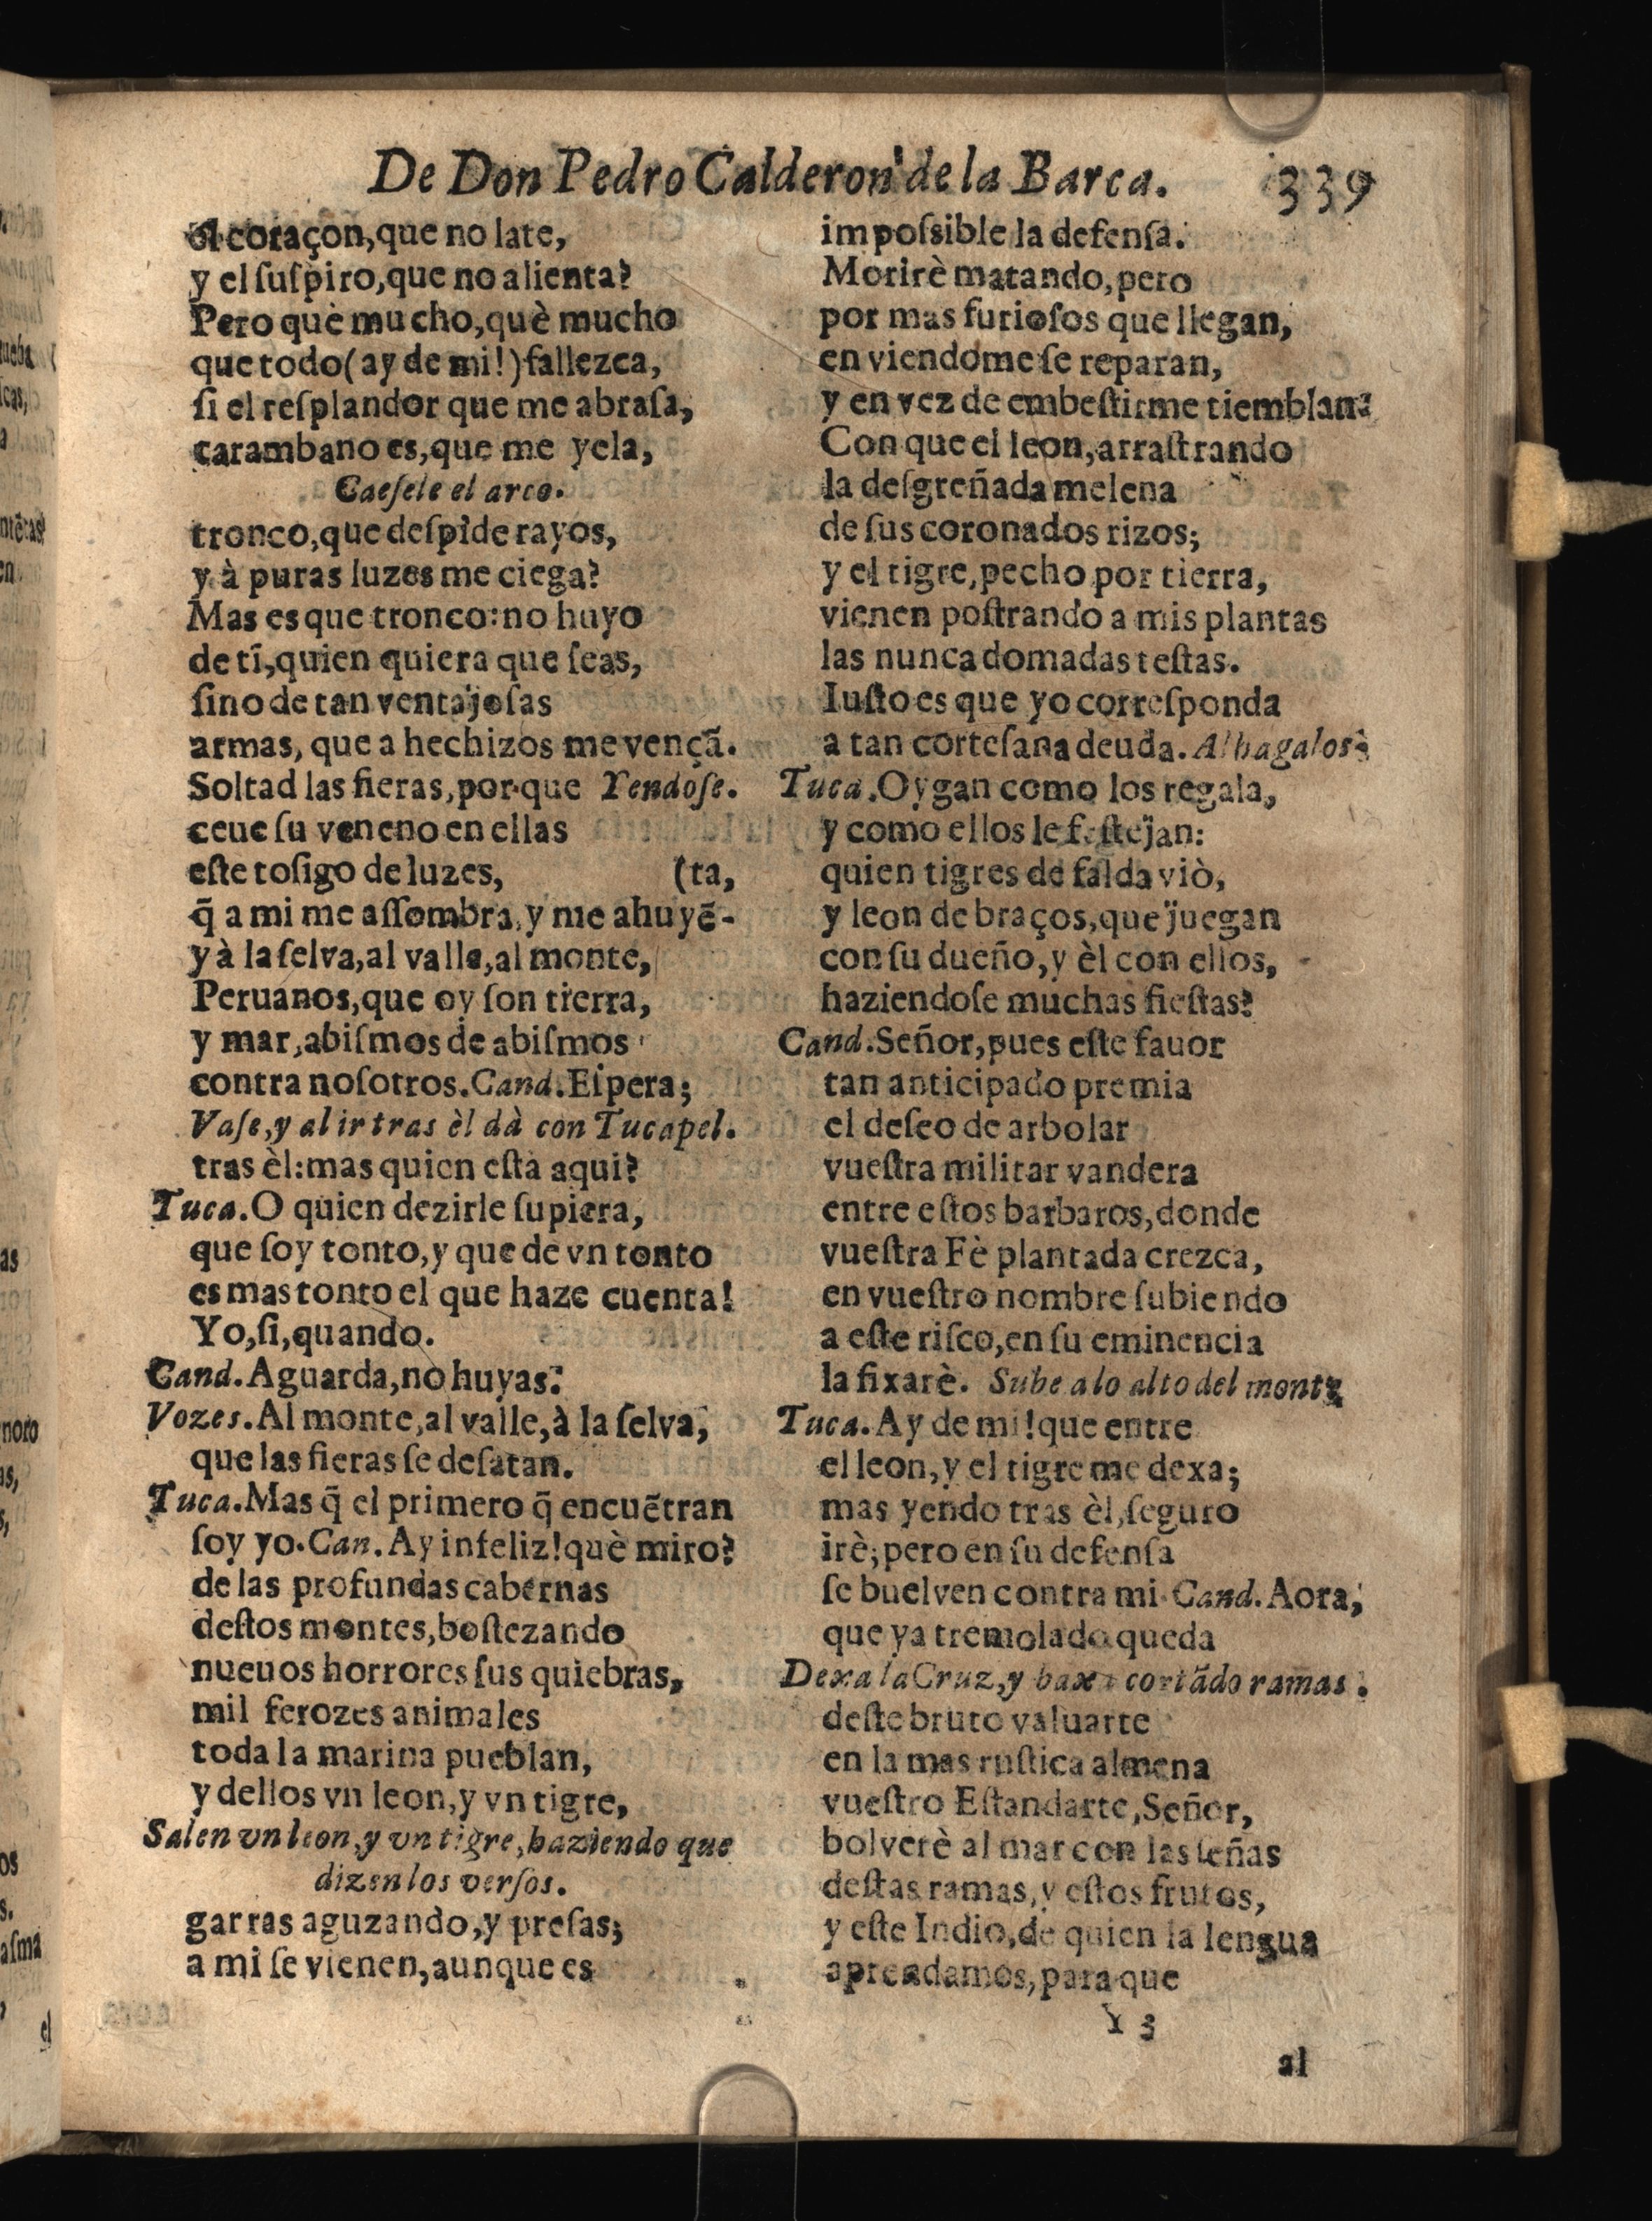 De Don Pedro Calderon de la Barca. 339
el coraçon, que no late,
y el ſuſpiro, que no alienta?
Pero què mucho, què mucho
que todo (ay de mi!) fallezca,
ſi el reſplandor que me abraſa,
carambano es, que me yela,
Caeſele el arco.
tronco, que deſpide rayos,
y à puras luzes me ciega?
Mas es que tronco: no huyo
de ti, quien quiera que ſeas,
ſino de tan ventajoſas
armas, que a hechizos me vençã.
Soltad las fieras, porque Yendoſe.
ceue ſu veneno en ellas
eſte toſigo de luzes, (ta,
q̃ a mi me aſſombra, y me ahuyẽ-
y à la ſelva, al valle, al monte,
Peruanos, que oy ſon tierra,
y mar, abiſmos de abiſmos
contra noſotros. Cand. Eſpera;
Vaſe, y al ir tras èl dà con Tucapel.
tras èl: mas quien eſtà aqui?
Tuca. O quien dezirle ſupiera,
que ſoy tonto, y que de vn tonto
es mas tonto el que haze cuenta!
Yo, ſi, quando.
Cand. Aguarda, no huyas.
Vozes. Al monte, al valle, à la ſelva,
que las fieras ſe deſatan.
Tuca. Mas q̃ el primero q̃ encuẽtran
ſoy yo. Can. Ay infeliz! què miro?
de las profundas cabernas
deſtos montes, boſtezando
nueuos horrores ſus quiebras,
mil ferozes animales
toda la marina pueblan,
y dellos vn leon, y vn tigre,
Salen vn leon, y vn tigre, haziendo que
dizen los verſos.
garras aguzando, y preſas;
a mi ſe vienen, aunque es
impoſsible la defenſa.
Morirè matando, pero
por mas furioſos que llegan,
en viendome ſe reparan,
y en vez de embeſtirme tiemblan?
Con que el leon, arraſtrando
la deſgreñada melena
de ſus coronados rizos;
y el tigre, pecho por tierra,
vienen poſtrando a mis plantas
las nunca domadas teſtas.
Iuſto es que yo correſponda
a tan corteſana deuda. Alhagalos.
Tuca. Oygan como los regala,
y como ellos le feſtejan:
quien tigres de falda viò,
y leon de braços, que juegan
con ſu dueño, y èl con ellos,
haziendoſe muchas fieſtas?
Cand. Señor, pues eſte fauor
tan anticipado premia
el deſeo de arbolar
vueſtra militar vandera
entre eſtos barbaros, donde
vueſtra Fè plantada crezca,
en vueſtro nombre ſubiendo
a eſte riſco, en ſu eminencia
la fixarè. Sube a lo alto del monte
Tuca. Ay de mi! que entre
el leon, y el tigre me dexa;
mas yendo tras èl, ſeguro
irè; pero en ſu defenſa
ſe buelven contra mi. Cand. Aora,
que ya tremolado queda
Dexa la Cruz, y baxa cortãdo ramas.
deſte bruto valuarte
en la mas ruſtica almena
vueſtro Eſtandarte, Señor,
bolverè al mar con las ſeñas
deſtas ramas, y eſtos frutos,
y eſte Indio, de quien la lengua
aprendamos, para que
Y 3
al